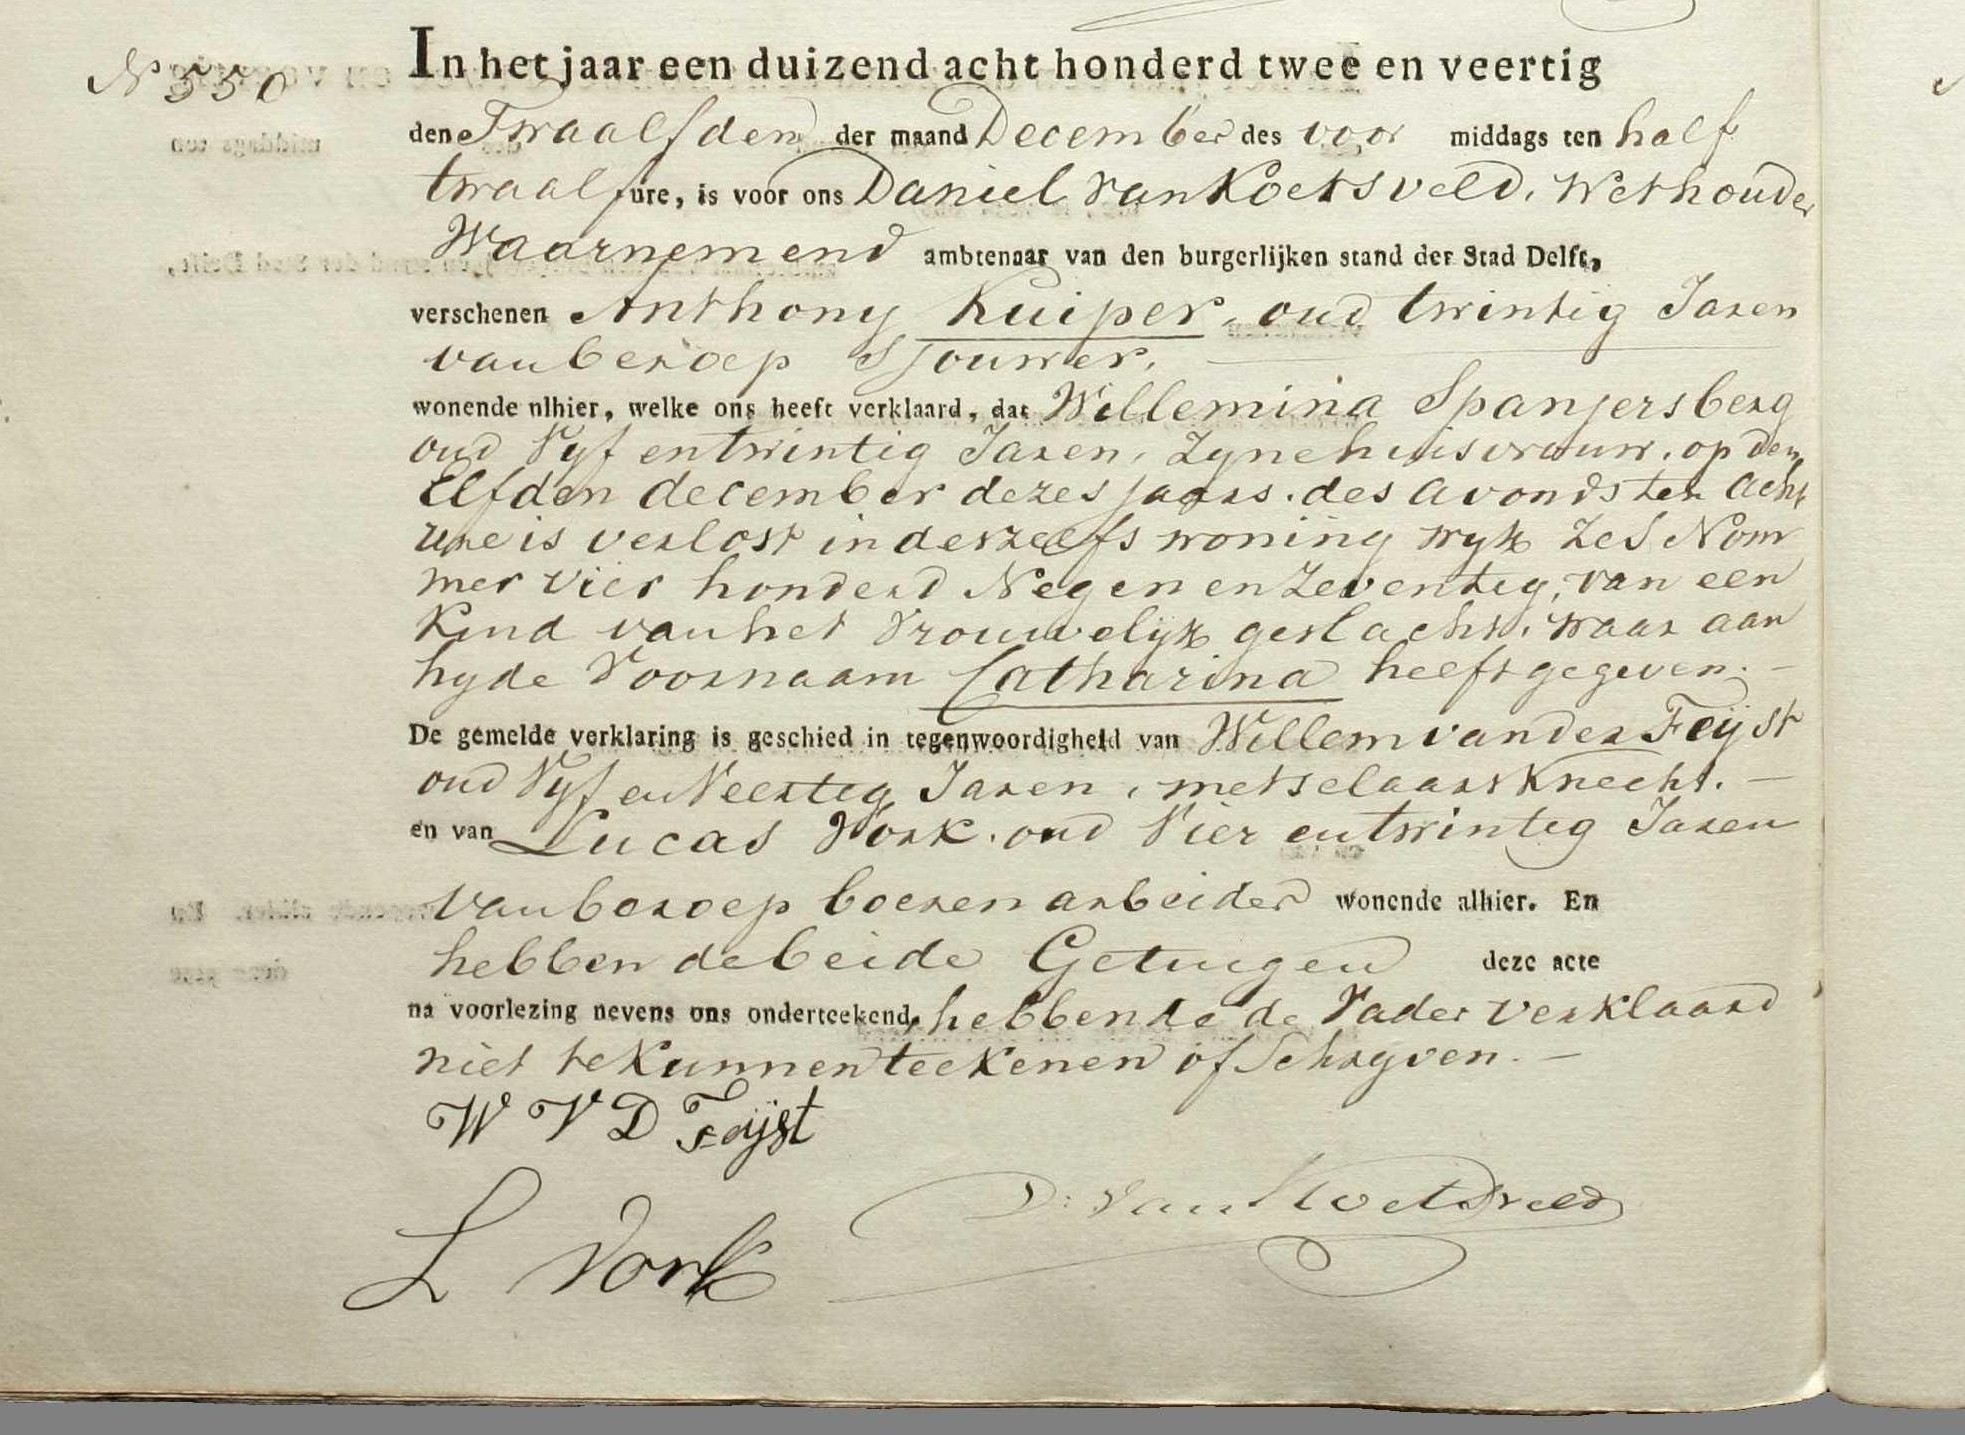 N 550
In het jaar een duizend acht honderd twee en veertig
den Twaalfden der maand December des voor middags ten half
twaalf ure, is voor ons Daniel van Koetsveld, Wethouder
Waarnemend ambtenaar van den burgerlijken stand der Stad Delft,
verschenen Anthony Kuiper, oud twintig Jaren
van beroep Sjouwer,
wonende alhier, welke ons heeft verklaard, dat Willemina Spanjersberg
oud Vyf en twintig Jaren, Zyne huisvrouw, op den
Elfden december dezes jaars. des avonds ten Acht
ure is verlost in derzelfs woning wyk Zes Nom
mer vier honderd Negen en Zeventig, van een
Kind van het Vrouwelijk geslacht, waar aan
hy de Voornaam Catharina heeft gegeven. —
De gemelde verklaring is geschied in tegenwoordigheid van Willem van der Feijst
oud Vyf en Veertig Jaren, metselaars Knecht. —
en van Lucas Vork. oud Vier en twintig Jaren
van beroep boeren arbeider wonende alhier. En
hebben de beide Getuigen deze acte
na voorlezing nevens ons onderteekend, hebbende de Vader verklaard
niet te Kunnen teekenen of Schryven. —
W V D Feijst
D: van Koetsveld
L Vork